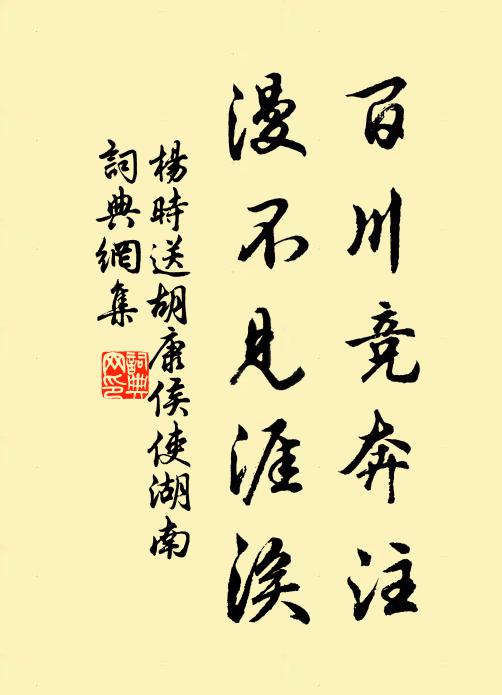 百川竞奔注
漫不見涯涘
楊時送胡康侯使湖南
詞典網集
詞典網印